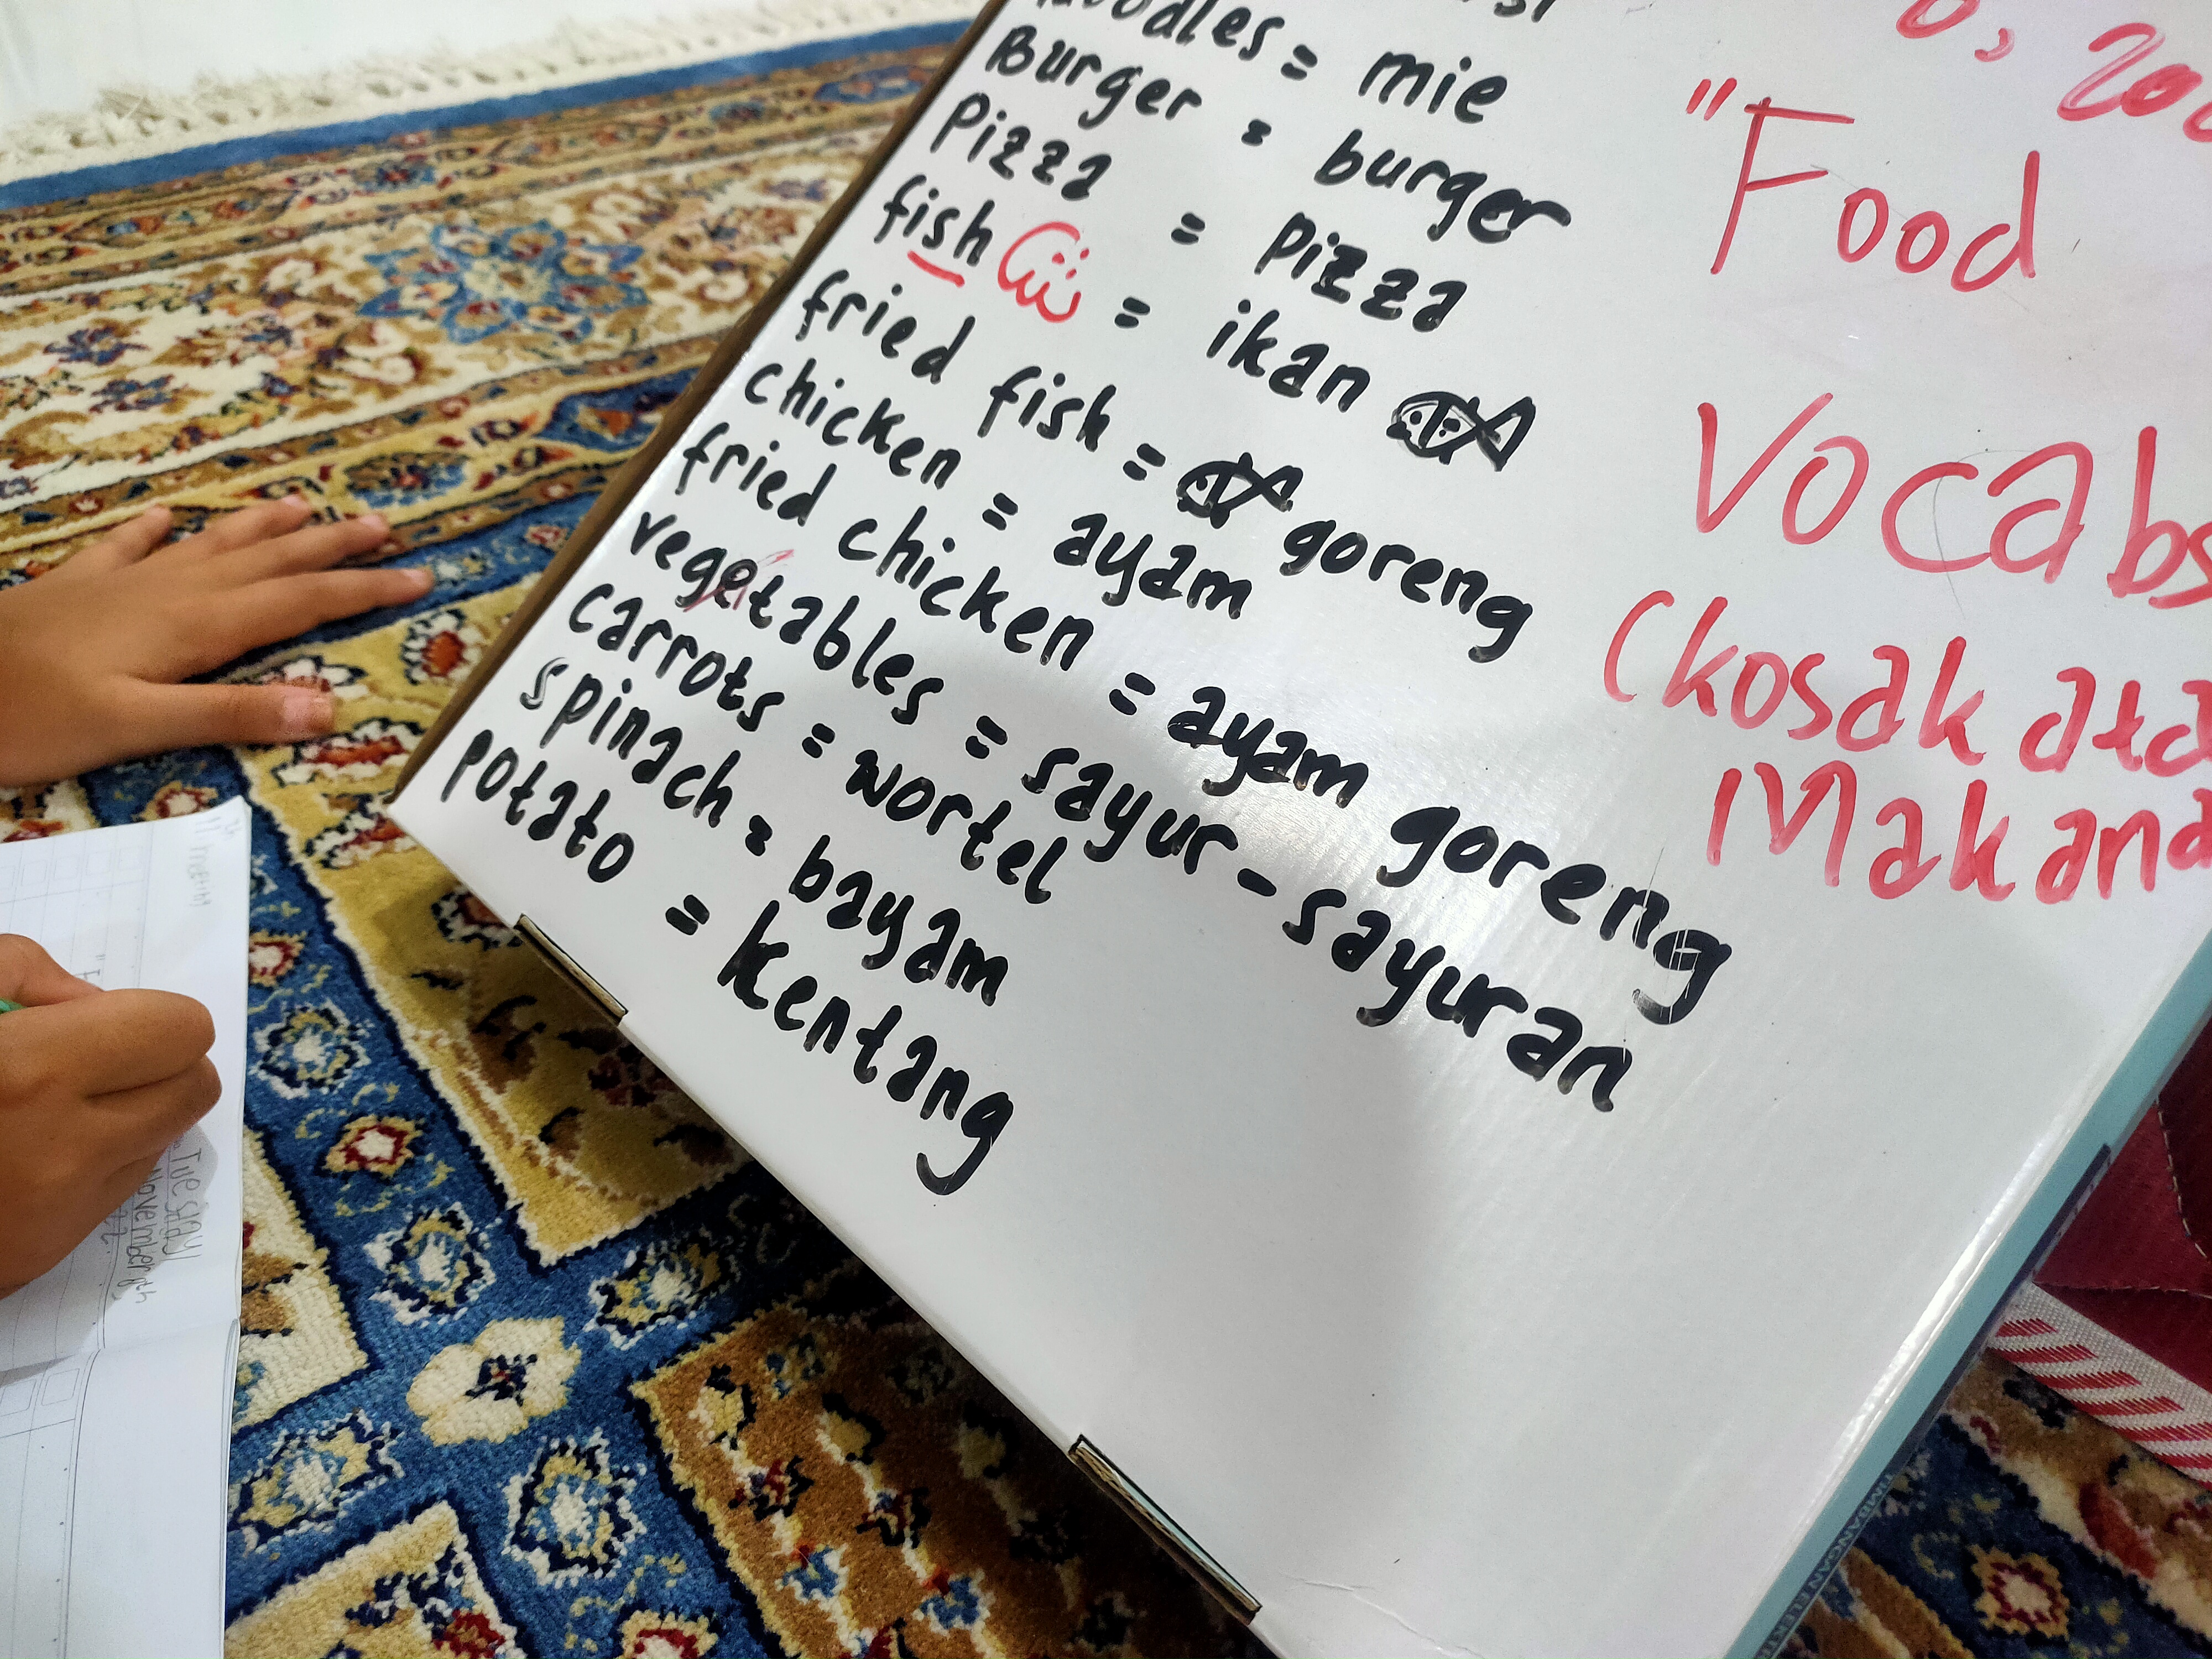 = mie
Burger = burger
Pizza = pizza
fish = ikan
fried fish = goreng
chicken = ayam
fried chicken = ayam goreng
vegetables = sayur-sayuran
carrots = wortel
spinach = bayam
potato = kentang
"Food
Vocabs
(kosakata
Makana
Tuesday